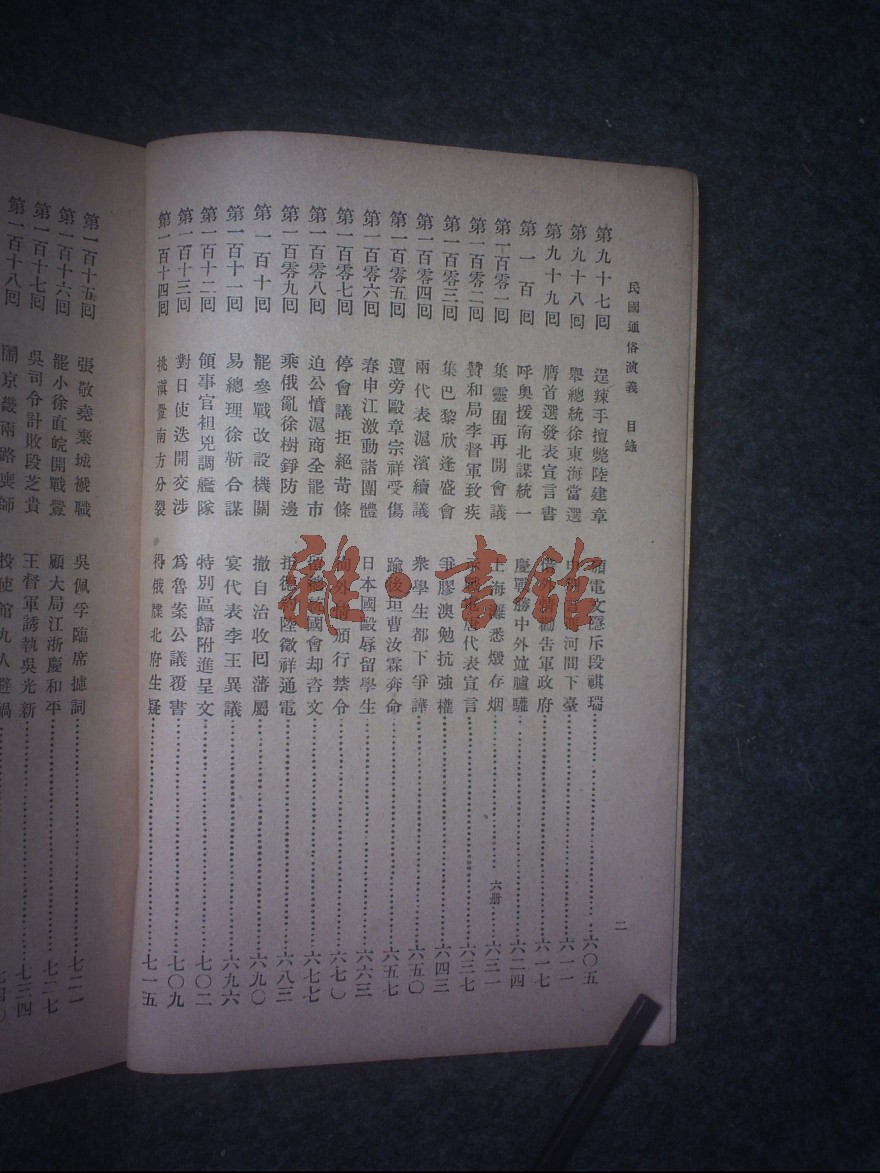 民國通俗演義 目錄
二
第九十七回 逞辣手擅斃陸建章 電文隱斥段祺瑞 六〇五
第九十八回 舉總統徐東海當選 河間下臺 六一一
第九十九回 膺首選發表宣言書 告軍政府 六一七
第一百回 呼奧援南北謀統一 慶戰勝中外竝臚驩 六二四
第一百零一回 集靈囿再開會議 上海灘悉燬存烟 六冊 六三一
第一百零二回 贊和局李督軍致疾 代表宣言 六三七
第一百零三回 集巴黎欣逢盛會 爭膠澳勉抗強權 六四三
第一百零四回 兩代表滬濱續議 衆學生都下爭譁 六五〇
第一百零五回 遭旁毆章宗祥受傷 踰後垣曹汝霖奔命 六五七
第一百零六回 春申江激動諸團體 日本國毆辱留學生 六六三
第一百零七回 停會議拒絕苛條 外情頒行禁令 六七〇
第一百零八回 迫公憤滬商全罷市 國會却咨文 六七七
第一百零九回 乘俄亂徐樹錚防邊 拒德約陸徵祥通電 六八三
第一百十回 罷參戰改設機關 撤自治收回藩屬 六九〇
第一百十一回 易總理徐靳合謀 宴代表李王異議 六九六
第一百十二回 領事官袒兇調艦隊 特別區歸附進呈文 七〇二
第一百十三回 對日使迭開交涉 爲魯案公議覆書 七〇九
第一百十四回 挑滇釁南方分裂 得俄牒北府生疑 七一五
第一百十五回 張敬堯棄城褫職 吳佩孚臨席摅詞 七二一
第一百十六回 罷小徐直皖開戰釁 顧大局江浙慶和平 七二七
第一百十七回 吳司令計敗段芝貴 王督軍誘執吳光新 七三四
第一百十八回 鬧京畿兩路喪師 投使館九人避禍 七四〇
雜·書館